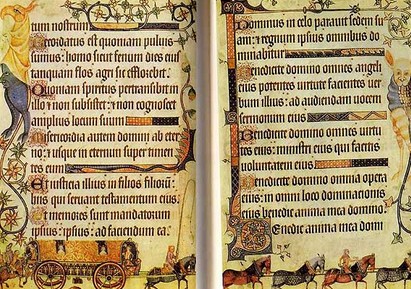 num nostrum
Recordatus est quoniam puluis
sumus: homo sicut fenum dies eius
tanquam flos agri sic efflorebit
Quoniam spiritus pertransibit in
illo et non subsistet: et non cognoscet
amplius locum suum
Misericordia autem domini ab eter
no: et usque in eternum super timen
tes eum
Et iusticia illius in filios filioru:
his qui seruant testamentum eius
Et memores sunt mandatorum
ipsius: ad faciendum ea
Dominus in celo parauit sedem su
am: et regnum ipsius omnibus do
minabitur
Benedicite domino omnes angeli
eius potentes uirtute facientes uer
bum illius: ad audiendam uocem
sermonum eius
Benedicite domino omnes uirtu
tes eius: ministri eius qui facitis
uoluntatem eius
Benedicite domino omnia opera
eius: in omni loco dominacionis
eius benedic anima mea domino
Benedic anima mea domino